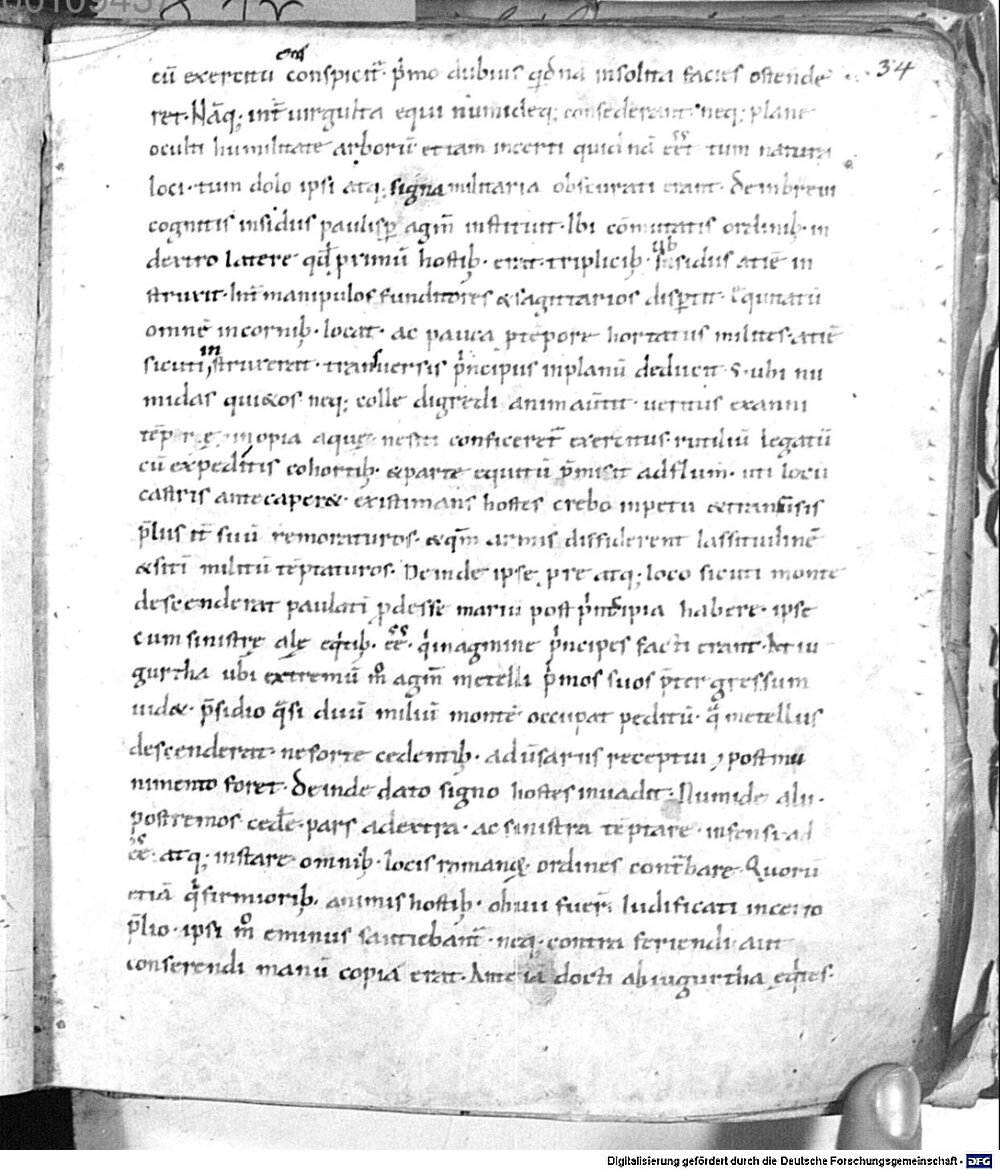 34
cū exercitu conspicit᷑ · p̄mo dubius qͥdnā insolita facies ostende
ret · Nāq; int̄ uirgulta equi numideq; consederant · neq; plane
oculti humilitate arborū et iam incerti quid nā eēt tum natura
loci · tum dolo ipsi atq; signa militaria obscurati erant · deinbreui
cognitis insidiis paulisꝑ agm̄ instituit · Ibi cōmutatis ordinib; in
dextro latere qđ primū hostib; erat · triplicib; subsidiis aciē in
struxit · Int̄ manipulos funditores & sagittarios disꝑtit · Equitatū
omnē in cornib; locat · ac pauca ꝓ tēpore hortatus milites · aciē
sicuti instruxerat · transuersis pͥncipiis inplanū deducit · S; ubi nu
midas qui&os neq; colle digredi animaūtit · ueritus exanni
tēpore inopia aquę nesiti conficeret᷑ exercitus · rutiliū legatū
cū expeditis cohortib; & parte equitū p̄misit ad flum̄ · uti locū
castris antecaper& · existimans hostes crebo inpetu & transūsis
p̄liis it̄ suū remoraturos · & qm̄ armis diffiderent lassitudinē
& sitī militū tēptaturos · Deinde ipse ꝓ re atq; loco sicuti monte
descenderat paulatī ꝓdesse mariū post pͥncipia habere · ipse
cum sinistrę alę eqͥtib; eē · qͥ in agmine pͥncipes facti erant · At iu
gurtha ubi extremū m̊ agm̄ metelli pͥmos suos p̄tergressum
uid& · p̄sidio qͣsi duū miliū montē occupat peditū · qͣ metellus
descenderat · ne forte cedentib; aduͥsariis receptui , post mu
nimento foret · Deinde dato signo hostes inuadit · Numidę alii ·
postremos cedeͬe · pars adextra · ac sinistra tēptare · infensi ad
eē · atq; instare · omnib; locis romanoꝝ ordines cont᷑bare · Quorū
etiā qͥ firmiorib; animis hostib; obuii fuer̄ · ludificati incerto
p̄lio · ipsi m̊ eminus sautiebant᷑ · neq; contra feriendi aut
conserendi manū copia erat · Ante iā docti ab iugurtha eqͥtes ·
Digitalisierung gefördert durch die Deutsche Forschungsgemeinschaft - DFG